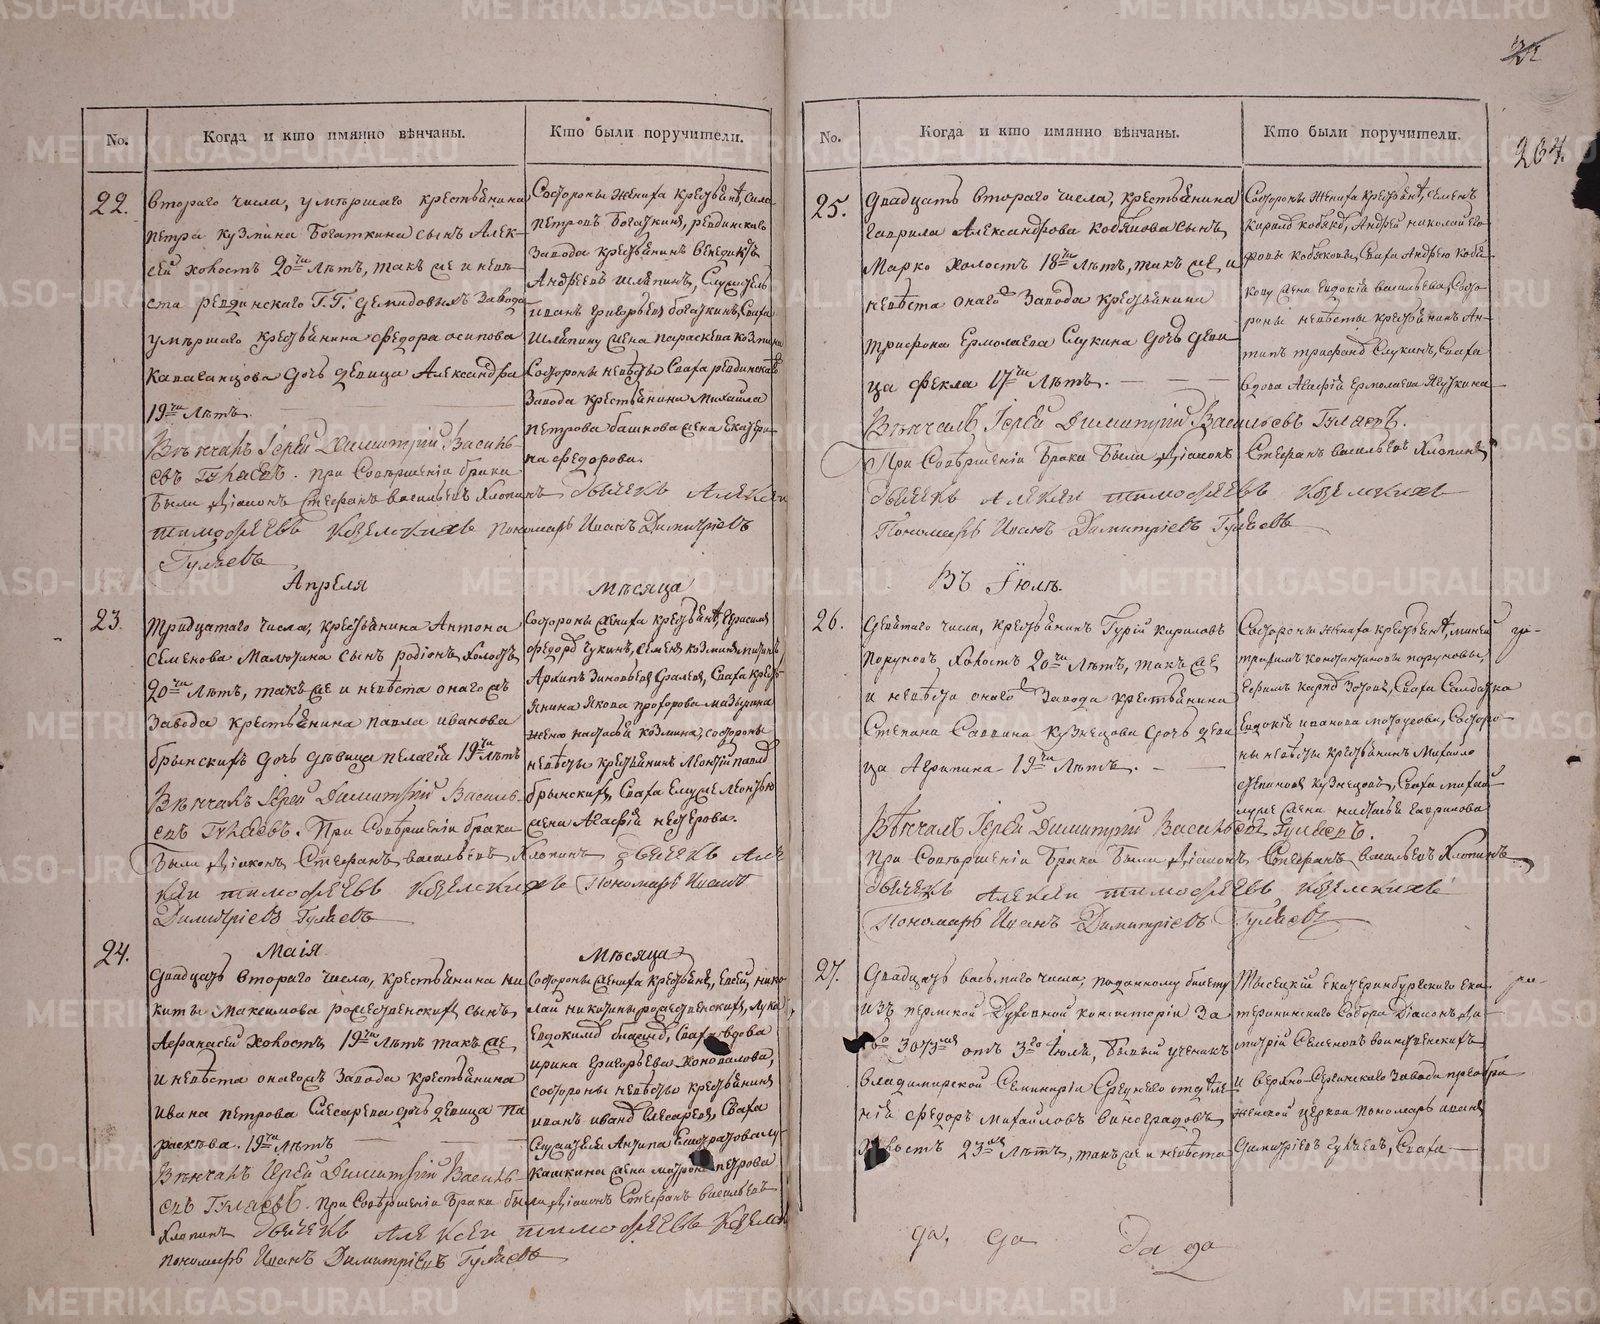 24
264.
No.
Когда и кто имянно вѣнчаны.
Кто были поручители.
22.
втораго числа, умѣршаго крестьянина
петра кузмина Богаткина сынъ Алек-
сей холостъ 20ти лѣтъ, такъ же и невѣ-
ста ревдинскаго Г.Г. демидовыхъ завода
умѣршаго крестьянина федора осипова
дочь девица Александра
19ти лѣтъ.
Вѣнчалъ Іерей Димитрій Василь-
евъ Гуляевъ. при Совѣршеніи брака
были Діаконъ Стефанъ васильевъ Хлопинъ дьячекъ Алексеи
тимофѣевъ Козелскихъ пономарь Иванъ Димитріевъ
Гуляевъ
Состороны жениха крестьянѣ, сила
петровъ Богаткинъ, ревдинскаго
завода крестьянинъ венедиктъ
Андреевъ шляпинъ, Служитель
иванъ григорьевъ богаткинъ, Сваха
Шляпину жена параскева козмина
Состороны невѣсты Сваха ревдинскаго
завода крестьянина Михаила
петрова башкова жена Екатери-
на федорова.
Апреля
Мѣсяца
23.
Тридцатаго числа, крестьянина Антона
семенова Малютина сынъ родіонъ, холостъ
20ти лѣтъ, такъ же и невѣста онагожъ
завода крестьянина павла иванова
брынскихъ дочь дѣвица пелагія 19ти лѣтъ
Вѣнчалъ Іерей Димитрій Василь-
евъ Гуляевъ. При Совѣршеніи брака
были Діаконъ Стефанъ васильевъ Хлопинъ дьячекъ Але
ксеи тимофѣевъ Козелскихъ Пономарь Иванъ
Димитріевъ Гуляевъ
Состороны жениха крестьянѣ, герасимъ
федоровъ семенъ козминъ
Архипъ зиновьевъ Сваха кресть-
янина якова прохорова мазырина
жена настасья козмина, состороны
невѣсты крестьянинъ Леонтій павловъ
брынскихъ, Сваха ему же леонтью
жена Агафія нестерова.
Маія
Мѣсяца
24.
двадцать втораго числа, крестьянина ни
киты Максимова рожественскихъ сынъ
Афанасей холостъ 19ти лѣтъ такъ же
и невѣста онагожъ завода крестьянина
ивана петрова Слесарева дочь девица па
раскѣва. 19ти лѣтъ
Вѣнчалъ Іерей Димитрій Василь-
евъ Гуляевъ. при Совѣршеніи брака были Діаконъ Стефанъ васильевъ
Хлопинъ дьячекъ Алексеи тимофѣевъ Козелск
пономарь Иванъ Димитріевъ Гуляевъ
Состороны жениха крестьянѣ, нико
лай никитинъ рожественскихъ, лука
Евдокимовъ Сваха вдова
ирина григорьева коновалова,
состороны невѣсты крестьянинъ
иванъ ивановъ Слесаревъ, Сваха
Служителя Антипа
кашкина жена матрона петрова
No.
Когда и кто имянно вѣнчаны.
Кто были поручители.
25.
двадцать втораго числа, крестьянина
гаврила Александрова кобякова сынъ
Марко холостъ 18ти лѣтъ, такъ же и
невѣста онагожъ завода крестьянина
трифона Ермолаева Слукина дочь деви
ца фекла 17ти лѣтъ.
Вѣнчалъ Іерей Димитрій Васильевъ Гуляевъ.
При Совѣршеніи брака были Діаконъ Стефанъ васильевъ Хлопинъ
дьячекъ Алексеи тимофѣевъ Козелскихъ
Пономарь Иванъ Димитріевъ Гуляевъ
Состороны жениха крестьянѣ, семенъ
кириловъ кобяковъ, Андрей николай его
ровы кобяковы, Сваха Андрею кобя-
кову жена евдокія васильева, Состо-
роны невѣсты крестьянинъ Ан-
типъ трифоновъ Слукинъ, Сваха
вдова Агафія Ермолаева
Въ Іюлѣ.
26.
Девятаго числа, крестьянинъ Гурій кириловъ
поруновъ, холостъ 20ти лѣтъ, такъ же
и невѣста онагожъ завода крестьянина
Степана Саввина кузнецова дочь деви
ца Агрипина 19ти лѣтъ.
Вѣнчалъ Іерей Димитрій Васильевъ Гуляевъ.
при Совѣршеніи брака были Діаконъ Стефанъ васильевъ Хлопинъ
дьячекъ Алексеи тимофѣевъ Козелскихъ
Пономарь Иванъ Димитріевъ Гуляевъ
Состороны жениха крестьянѣ, миней
трифилъ константиновы поруновы,
Ефимъ карповъ зотовъ, Сваха Салдатка
Евдокія иванова Состоро-
ны невѣсты крестьянинъ Михайло
степановъ кузнецовъ, Сваха михай-
лу же жена настасья гаврилова
27.
двадцать васьмаго числа, поданному билету
изъ пермской Духовной консисторіи за
3073мъ отъ 3го іюля, бывый ученикъ
владимирской Семинаріи Среднего отдѣле-
нія федоръ михайловъ виноградовъ
холостъ 23хъ лѣтъ, такъ же и невѣста
Тысецкій Екатеринбургскаго Ека-
терининскаго Собора Діаконъ Ди-
митрій Семеновъ вознесенскихъ
и верхо-Сергинскаго завода преобра
женской церкви пономарь иванъ
Димитріевъ гуляевъ, Сваха
да, да да да